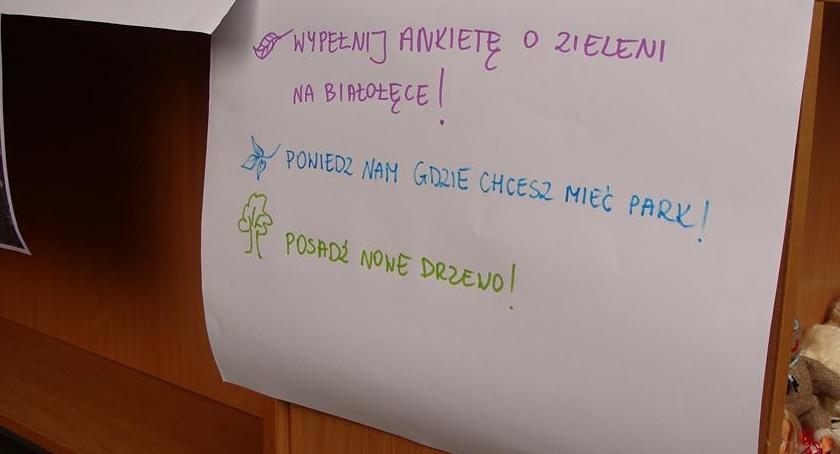 WYPEŁNIJ ANKIETĘ O ZIELENI
NA BIAŁOŁĘCE!
POWIEDZ NAM GDZIE CHCESZ MIEĆ PARK!
POSADŹ NOWE DRZEWO!